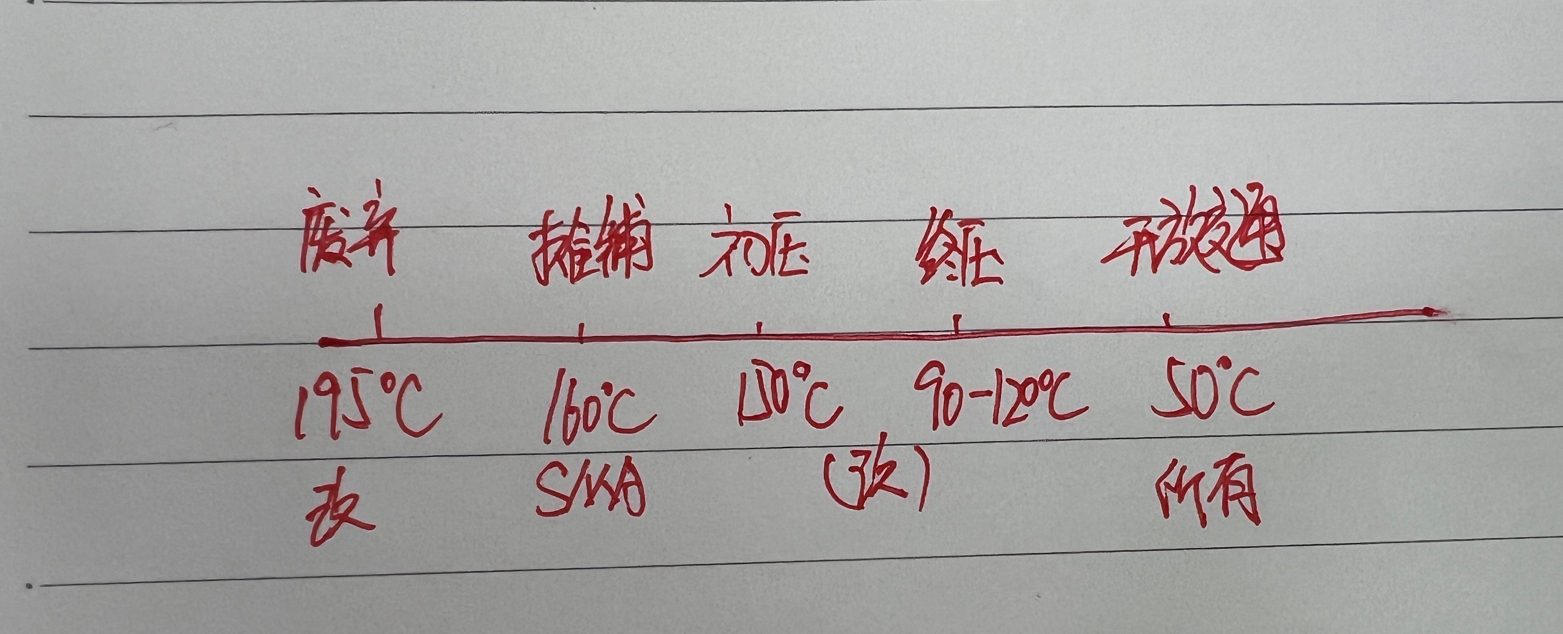 废弃 摊铺 初压 终压 开放交通
195°C 160°C 150°C 90-120°C 50°C
改 SMA (改) 所有